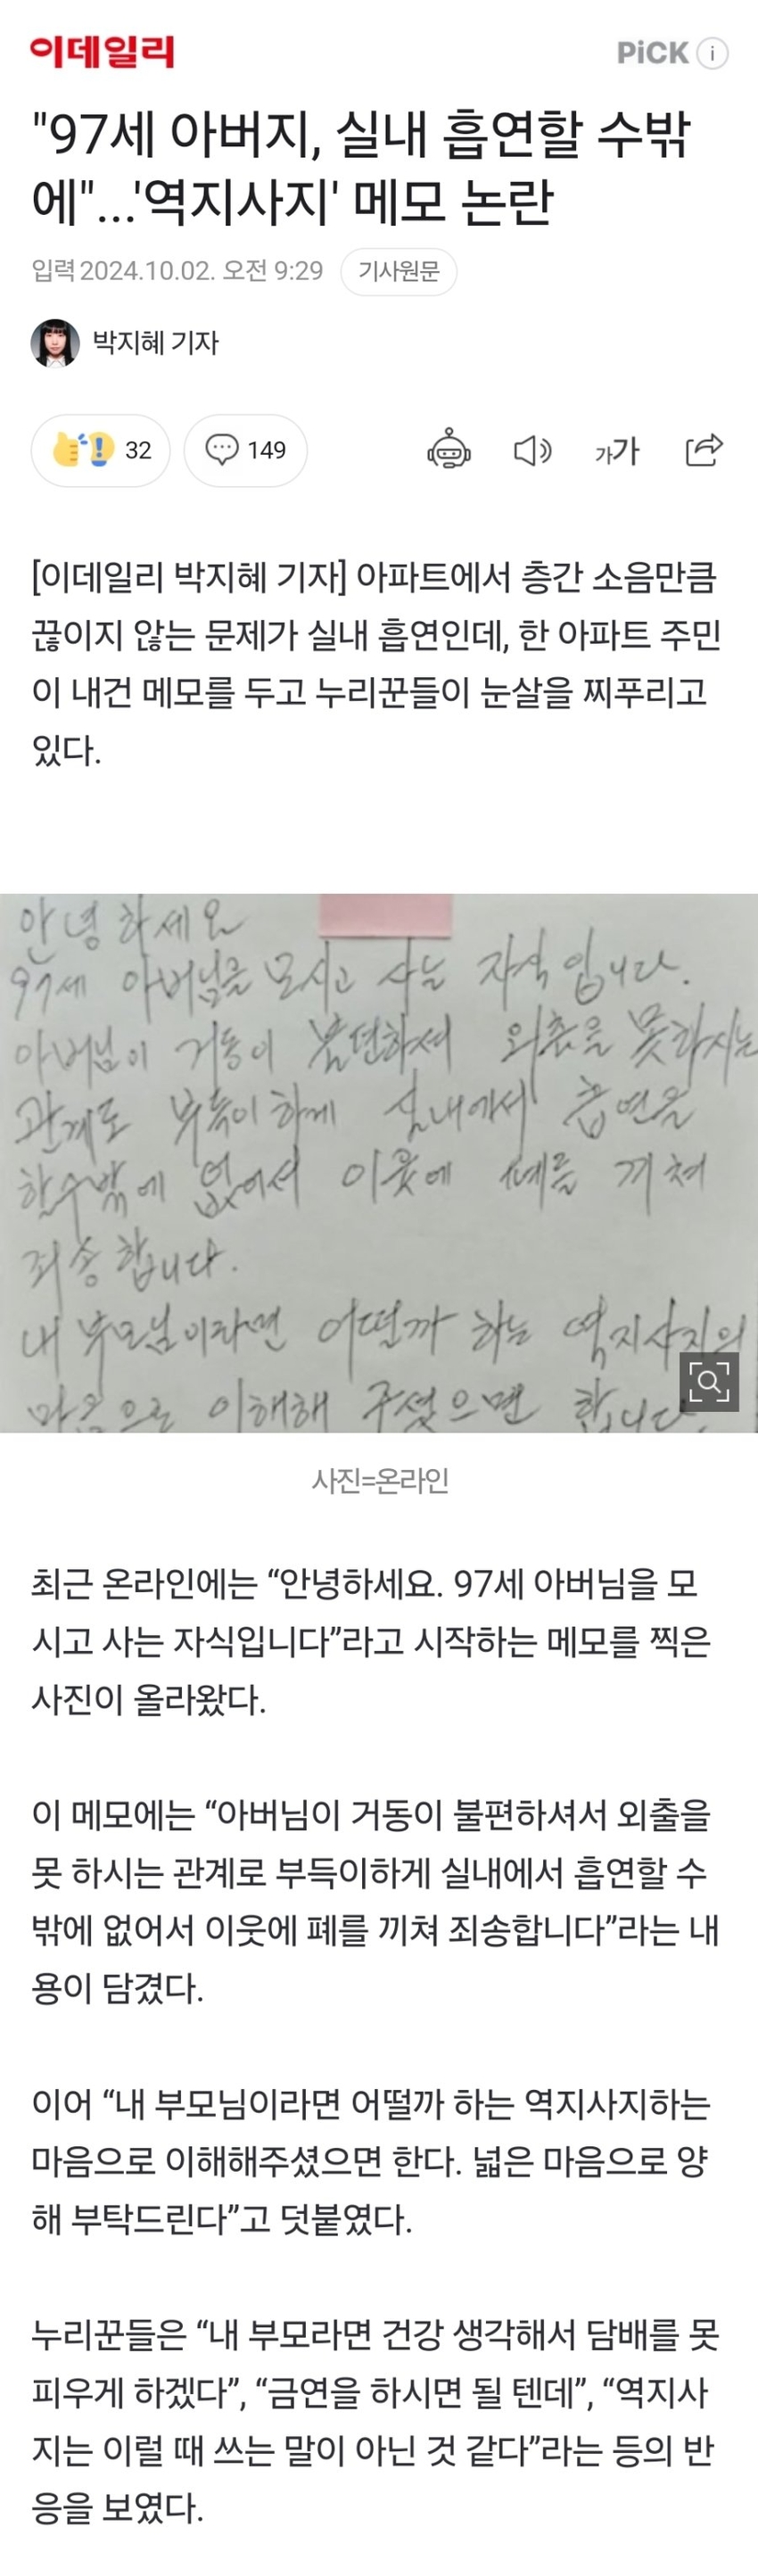 이데일리
PiCK i
"97세 아버지, 실내 흡연할 수밖
에"...'역지사지' 메모 논란
입력 2024.10.02. 오전 9:29 기사원문
박지혜 기자
32 149 가가
[이데일리 박지혜 기자] 아파트에서 층간 소음만큼
끊이지 않는 문제가 실내 흡연인데, 한 아파트 주민
이 내건 메모를 두고 누리꾼들이 눈살을 찌푸리고
있다.
안녕하세요
97세 아버님을 모시고 사는 자식입니다.
아버님이 거동이 불편하셔 외출을 못하시는
관계로 부득이하게 실내에서 흡연을
할수밖에 없어서 이웃에 폐를 끼쳐
죄송합니다.
내 부모님이라면 어떨까 하는 역지사지의
마음으로 이해해 주셨으면 합니다
사진=온라인
최근 온라인에는 “안녕하세요. 97세 아버님을 모
시고 사는 자식입니다”라고 시작하는 메모를 찍은
사진이 올라왔다.
이 메모에는 “아버님이 거동이 불편하셔서 외출을
못 하시는 관계로 부득이하게 실내에서 흡연할 수
밖에 없어서 이웃에 폐를 끼쳐 죄송합니다”라는 내
용이 담겼다.
이어 “내 부모님이라면 어떨까 하는 역지사지하는
마음으로 이해해주셨으면 한다. 넓은 마음으로 양
해 부탁드린다”고 덧붙였다.
누리꾼들은 “내 부모라면 건강 생각해서 담배를 못
피우게 하겠다”, “금연을 하시면 될 텐데”, “역지사
지는 이럴 때 쓰는 말이 아닌 것 같다”라는 등의 반
응을 보였다.